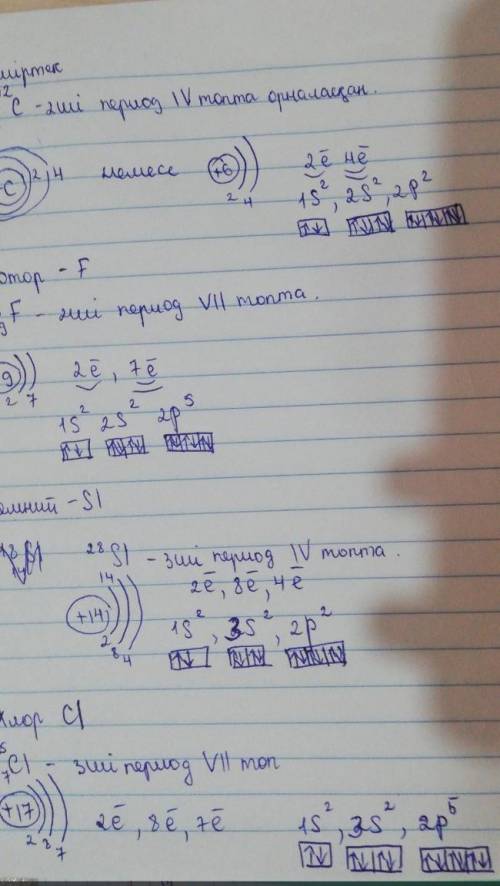 міртек
12
C - 2ші период IV топта орналасқан.
C 2, 4 немесе +6 2 4 2ē 4ē
1S², 2S², 2p²
отор - F
9 F - 2ші период VII топта.
9 2 7 2ē, 7ē
1S² 2S² 2p⁵
емний - SI
28 14 SI - 3ші период IV топта.
+14 2 8 4 2ē, 8ē, 4ē
1S², 3S², 2p²
Хлор Cl
Cl - 3ші период VII топ
+17 2 8 7 2ē, 8ē, 7ē 1S², 3S², 2p⁵